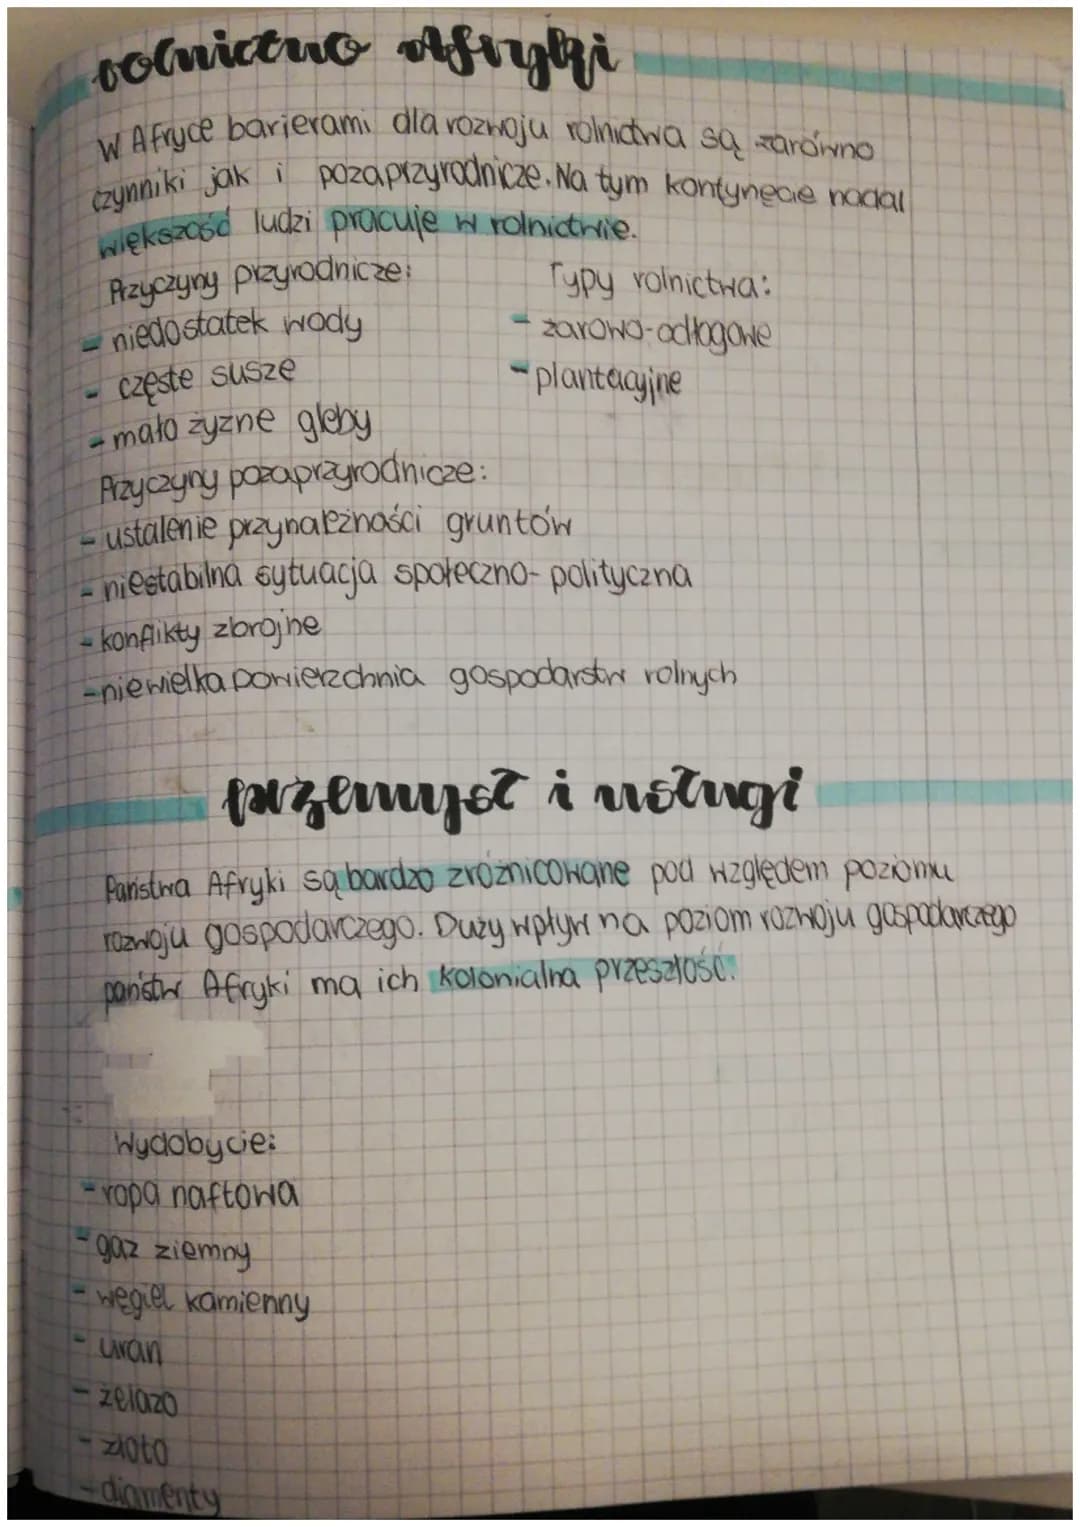 rolnictwo Afryki
W Afryce barierami dla rozwoju rolnictwa są zarówno
czynniki jak i pozaprzyrodnicze. Na tym kontynęcie nadal
większość ludzi pracuje w rolnictwie.
Przyczyny przyrodnicze:
- niedostatek wody
- częste susze
- mało żyzne gleby
Typy rolnictwa:
- żarowo-odłogowe
- plantacyjne
Przyczyny pozaprzyrodnicze:
- ustalenie przynależności gruntów
- niestabilna sytuacja społeczno-polityczna
- konflikty zbrojne
- niewielka powierzchnia gospodarstw rolnych
przemysł i usługi
Państwa Afryki są bardzo zróżnicowane pod względem poziomu
rozwoju gospodarczego. Duży wpływ na poziom rozwoju gospodarczego
państw Afryki ma ich kolonialna przeszłość.
Wydobycie:
- ropa naftowa
- gaz ziemny
- węgiel kamienny
- uran
- żelazo
- złoto
- diamenty